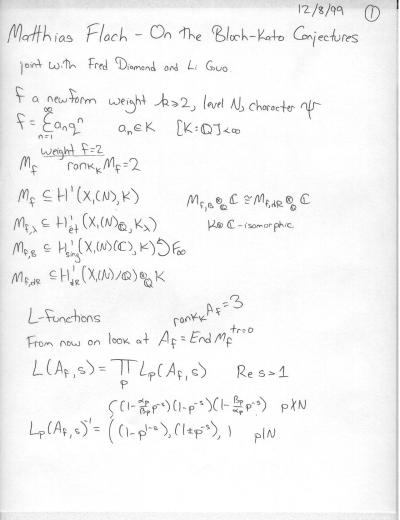 12/8/99 ①
Matthias Flach - On the Bloch-Kato Conjectures
joint with Fred Diamond and Li Guo
f a newform weight k≥2, level N, character ψ
f = ∑_{n=1}^{∞} a_n q^n   a_n ∈ K   [K:ℚ]<∞
weight f=2
M_f   rank_K M_f = 2
M_f ⊆ H¹(X₁(N), K)   M_{f,B} ⊗_ℚ ℂ ≅ M_{f,dR} ⊗_ℚ ℂ
M_{f,λ} ⊆ H¹_{ét}(X₁(N)_ℚ, K_λ)   K⊗ℂ-isomorphic
M_{f,B} ⊆ H¹_{sing}(X₁(N)(ℂ), K) ↺ F_∞
M_{f,dR} ⊆ H¹_{dR}(X₁(N)/ℚ) ⊗_ℚ K
L-functions   rank_K A_f = 3
From now on look at A_f = End M_f^{tr=0}
L(A_f, s) = ∏_p L_p(A_f, s)   Re s > 1
L_p(A_f, s)^{-1} = { (1 - α_p/β_p p^{-s})(1-p^{-s})(1 - β_p/α_p p^{-s})   p∤N
(1-p^{1-s}), (1±p^{-s}), 1   p|N